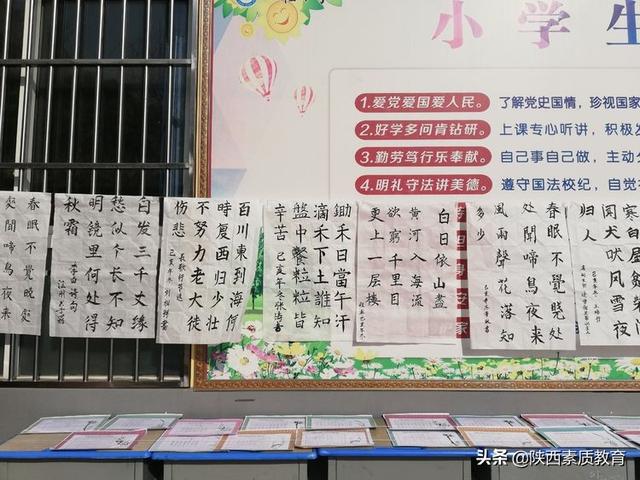 小学生
1.爱党爱国爱人民。 了解党史国情，珍视国家
2.好学多问肯钻研。 上课专心听讲，积极发
3.勤劳笃行乐奉献。 自己事自己做，主动分
4.明礼守法讲美德。 遵守国法校纪，自觉
春眠不覺晓处
處聞啼鳥夜来
白发三千丈缘
愁似个长不知
明镜里何处得
秋霜
李白诗句
百川東到海何
時復西归少壮
不努力老大徒
伤悲
鋤禾日當午汗
滴禾下土誰知
盤中餐粒粒皆
辛苦
己亥年冬
白日依山盡
黄河入海流
欲窮千里目
更上一层楼
春眠不覺曉处
處聞啼鳥夜来
風雨聲花落知
多少
闻犬吠风雪夜
归人
头条@陕西素质教育